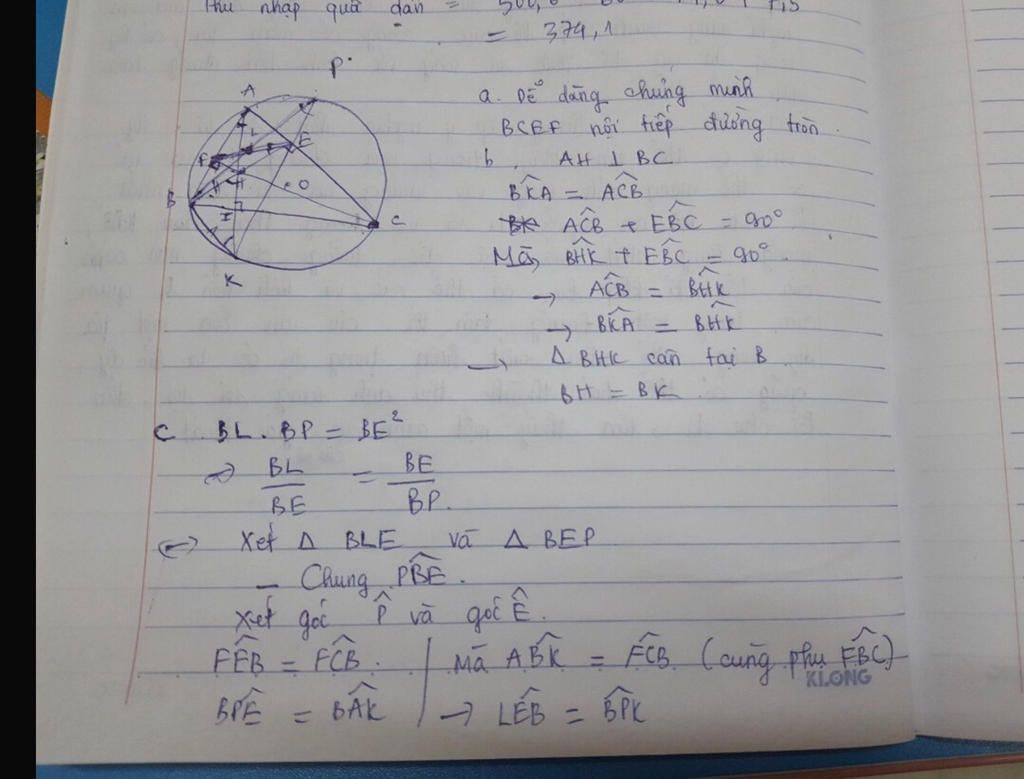 Thu nhập quả dân =
= 374,1
P.
A
L
E
F
H
O
B
I
C
K
a. Dễ dàng chứng minh
BCEF nội tiếp đường tròn
b. AH ⊥ BC
B̂KA = AĈB
AĈB + EB̂C = 90°
Mà, BĤK + EB̂C = 90°.
→ AĈB = BĤK
→ BK̂A = BĤK
→ Δ BHK cân tại B
BH = BK
c. BL. BP = BE²
=> BL/BE = BE/BP.
<=> Xét Δ BLE và Δ BEP
- Chung PB̂E.
Xét góc P̂ và góc Ê.
FÊB = FĈB. | Mà AB̂K = FĈB (cùng phụ FB̂C)
KLONG
BP̂E = BÂK | → LÊB = BP̂K